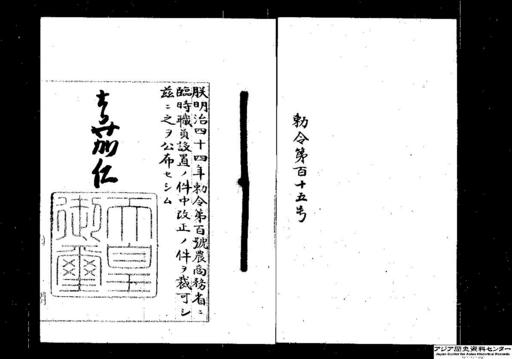 勅令第百十五号
朕明治四十四年勅令第百號農商務省ニ
臨時職員設置ノ件中改正ノ件ヲ裁可シ
茲ニ之ヲ公布セシム
嘉仁
天皇
御璽
アジア歴史資料センター
Japan Center for Asian Historical Records